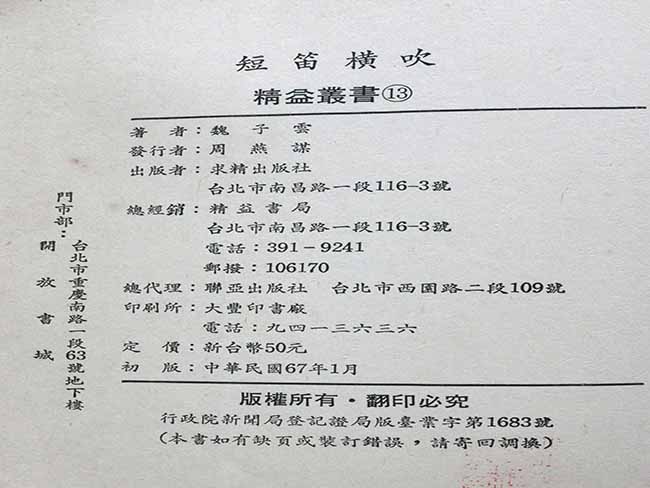 短笛橫吹
精益叢書⑬
著者：魏子雲
發行者：周燕謀
出版者：求精出版社
台北市南昌路一段116-3號
總經銷：精益書局
台北市南昌路一段116-3號
電話：391-9241
郵撥：106170
總代理：聯亞出版社 台北市西園路二段109號
印刷所：大豐印書廠
電話：九四一三六三六
定價：新台幣50元
初版：中華民國67年1月
版權所有·翻印必究
行政院新聞局登記證局版臺業字第1683號
（本書如有缺頁或裝訂錯誤，請寄回調換）
門市部：
開放書城
台北市重慶南路一段63號地下樓